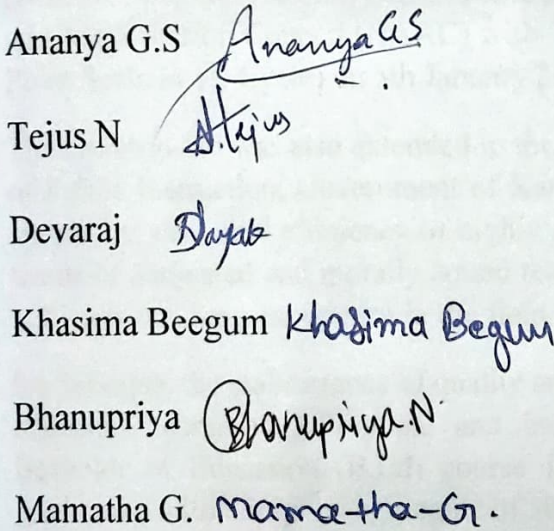 Ananya G.S Ananya GS
Tejus N N.Tejus
Devaraj
Khasima Beegum Khasima Begum
Bhanupriya Bhanupriya.N.
Mamatha G. Mamatha-G.